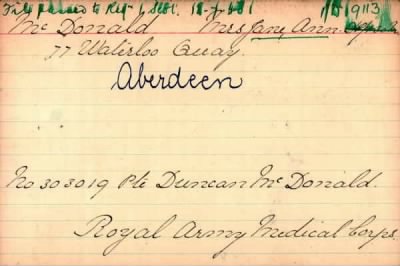 File passed to Regt 1, Sebt. 12-7-
Mc Donald Mrs Jane Ann.
77 Waterloo Quay.
Aberdeen
No 303019 Pte Duncan McDonald.
Royal Army Medical Corps.